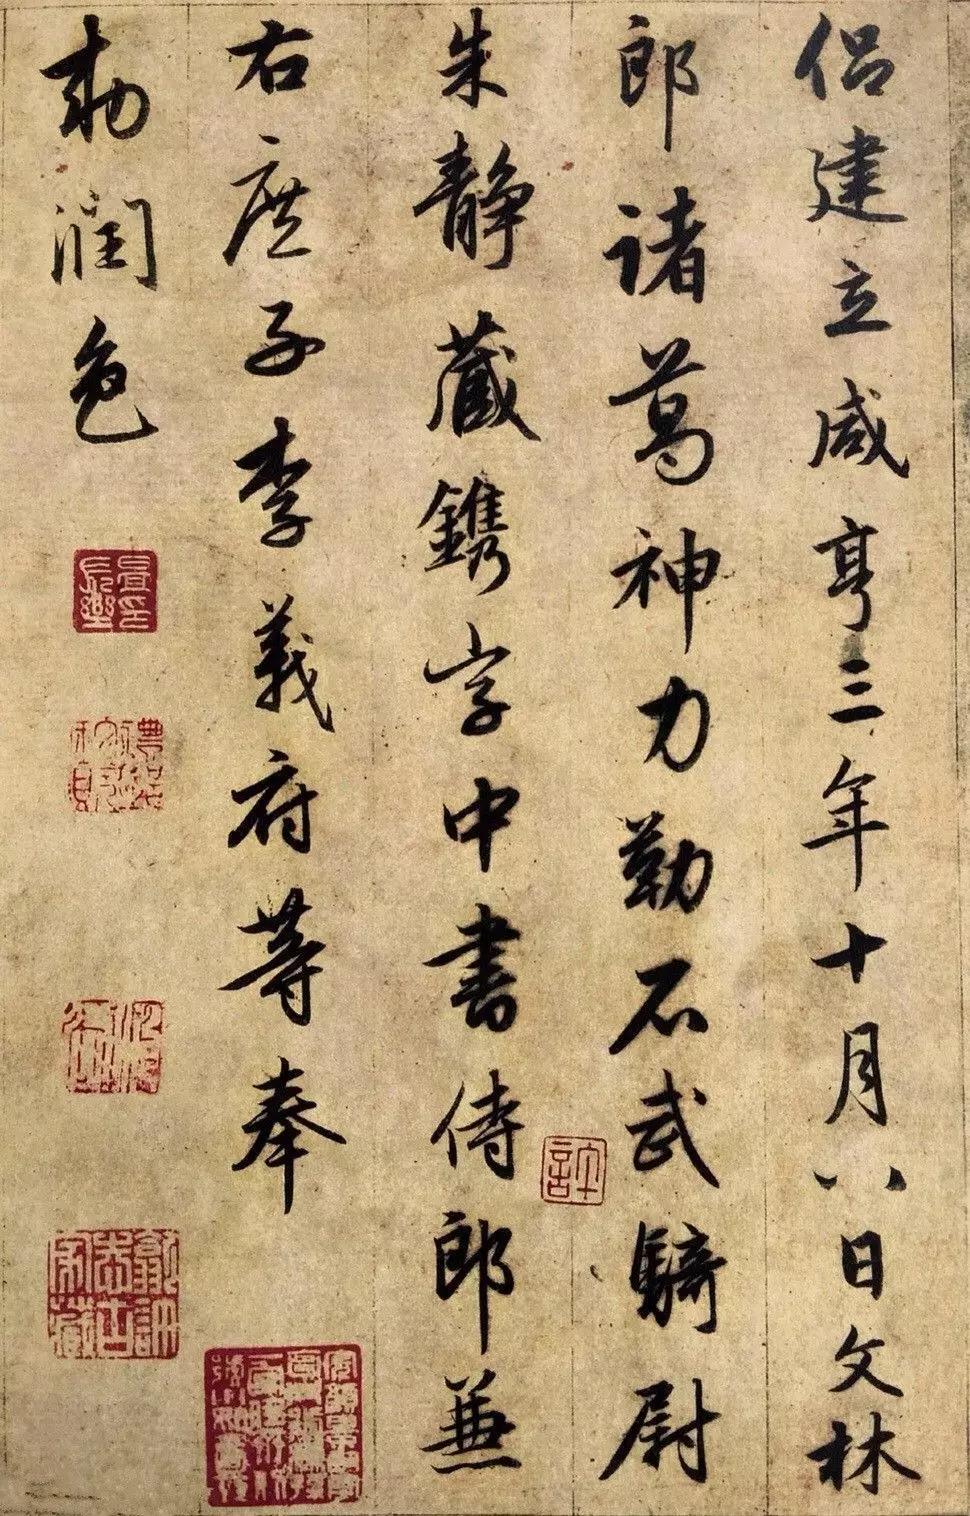 侣建立咸亨三年十月八日文林
郎诸葛神力勒石武騎尉
朱静藏鐫字中書侍郎兼
右庶子李義府等奉
勑潤色